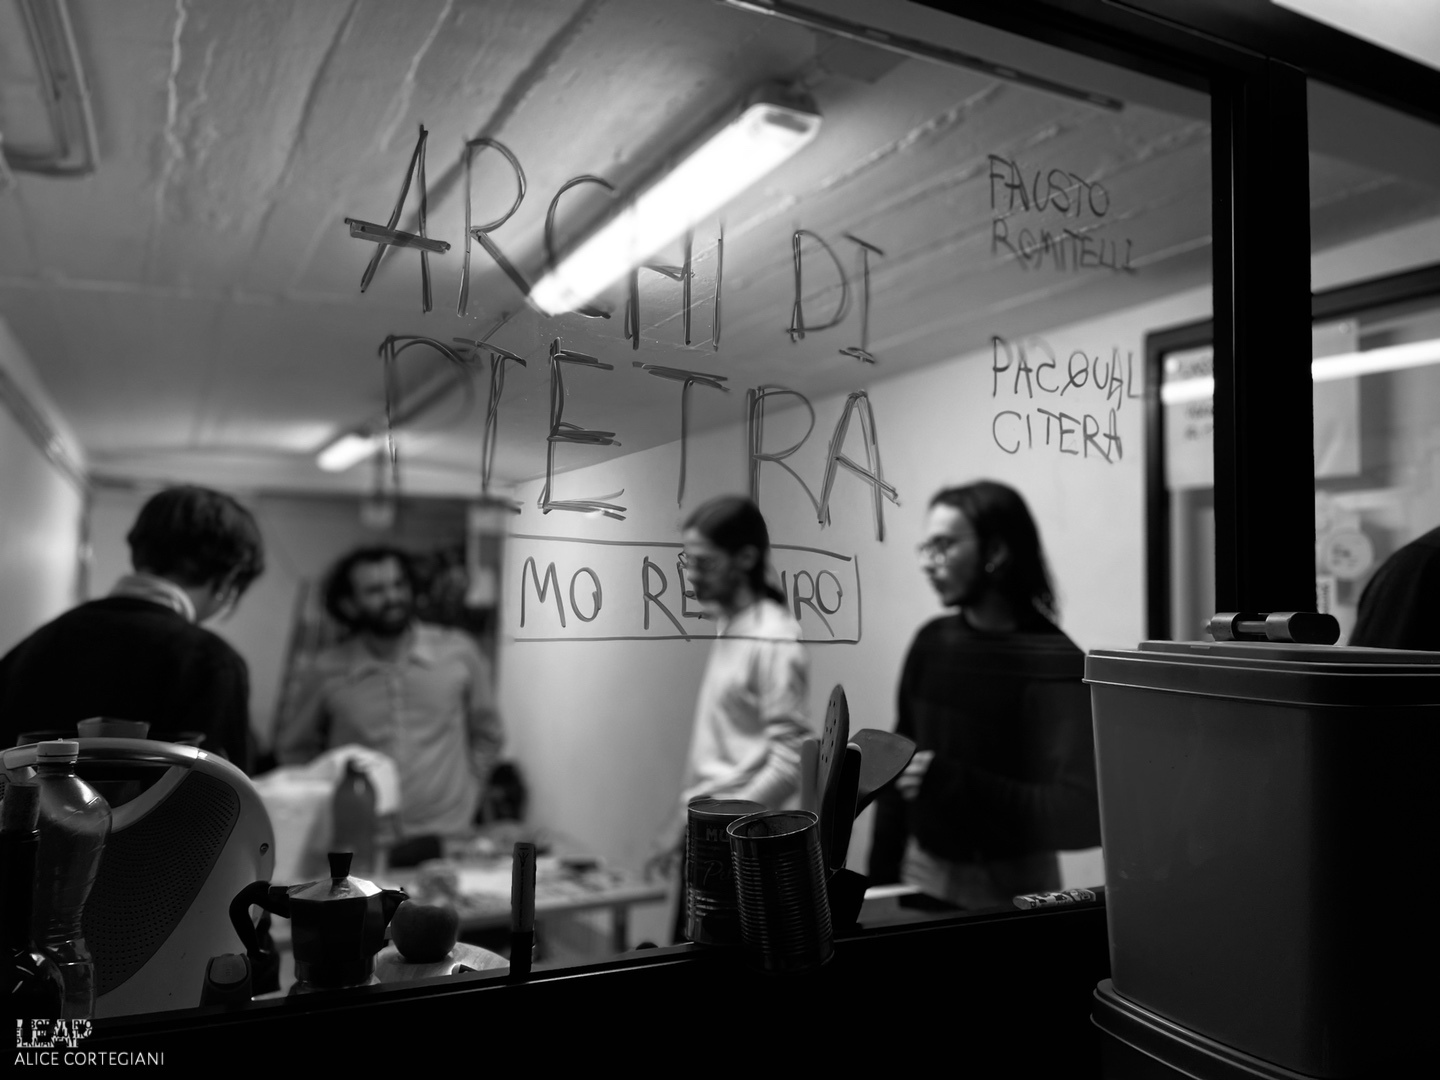 ARCHI DI
PIETRA
MO RE
IRO
FAUSTO
ROMITELLI
PASQUAL
CITERA
MO
LEAP
ALICE CORTEGIANI